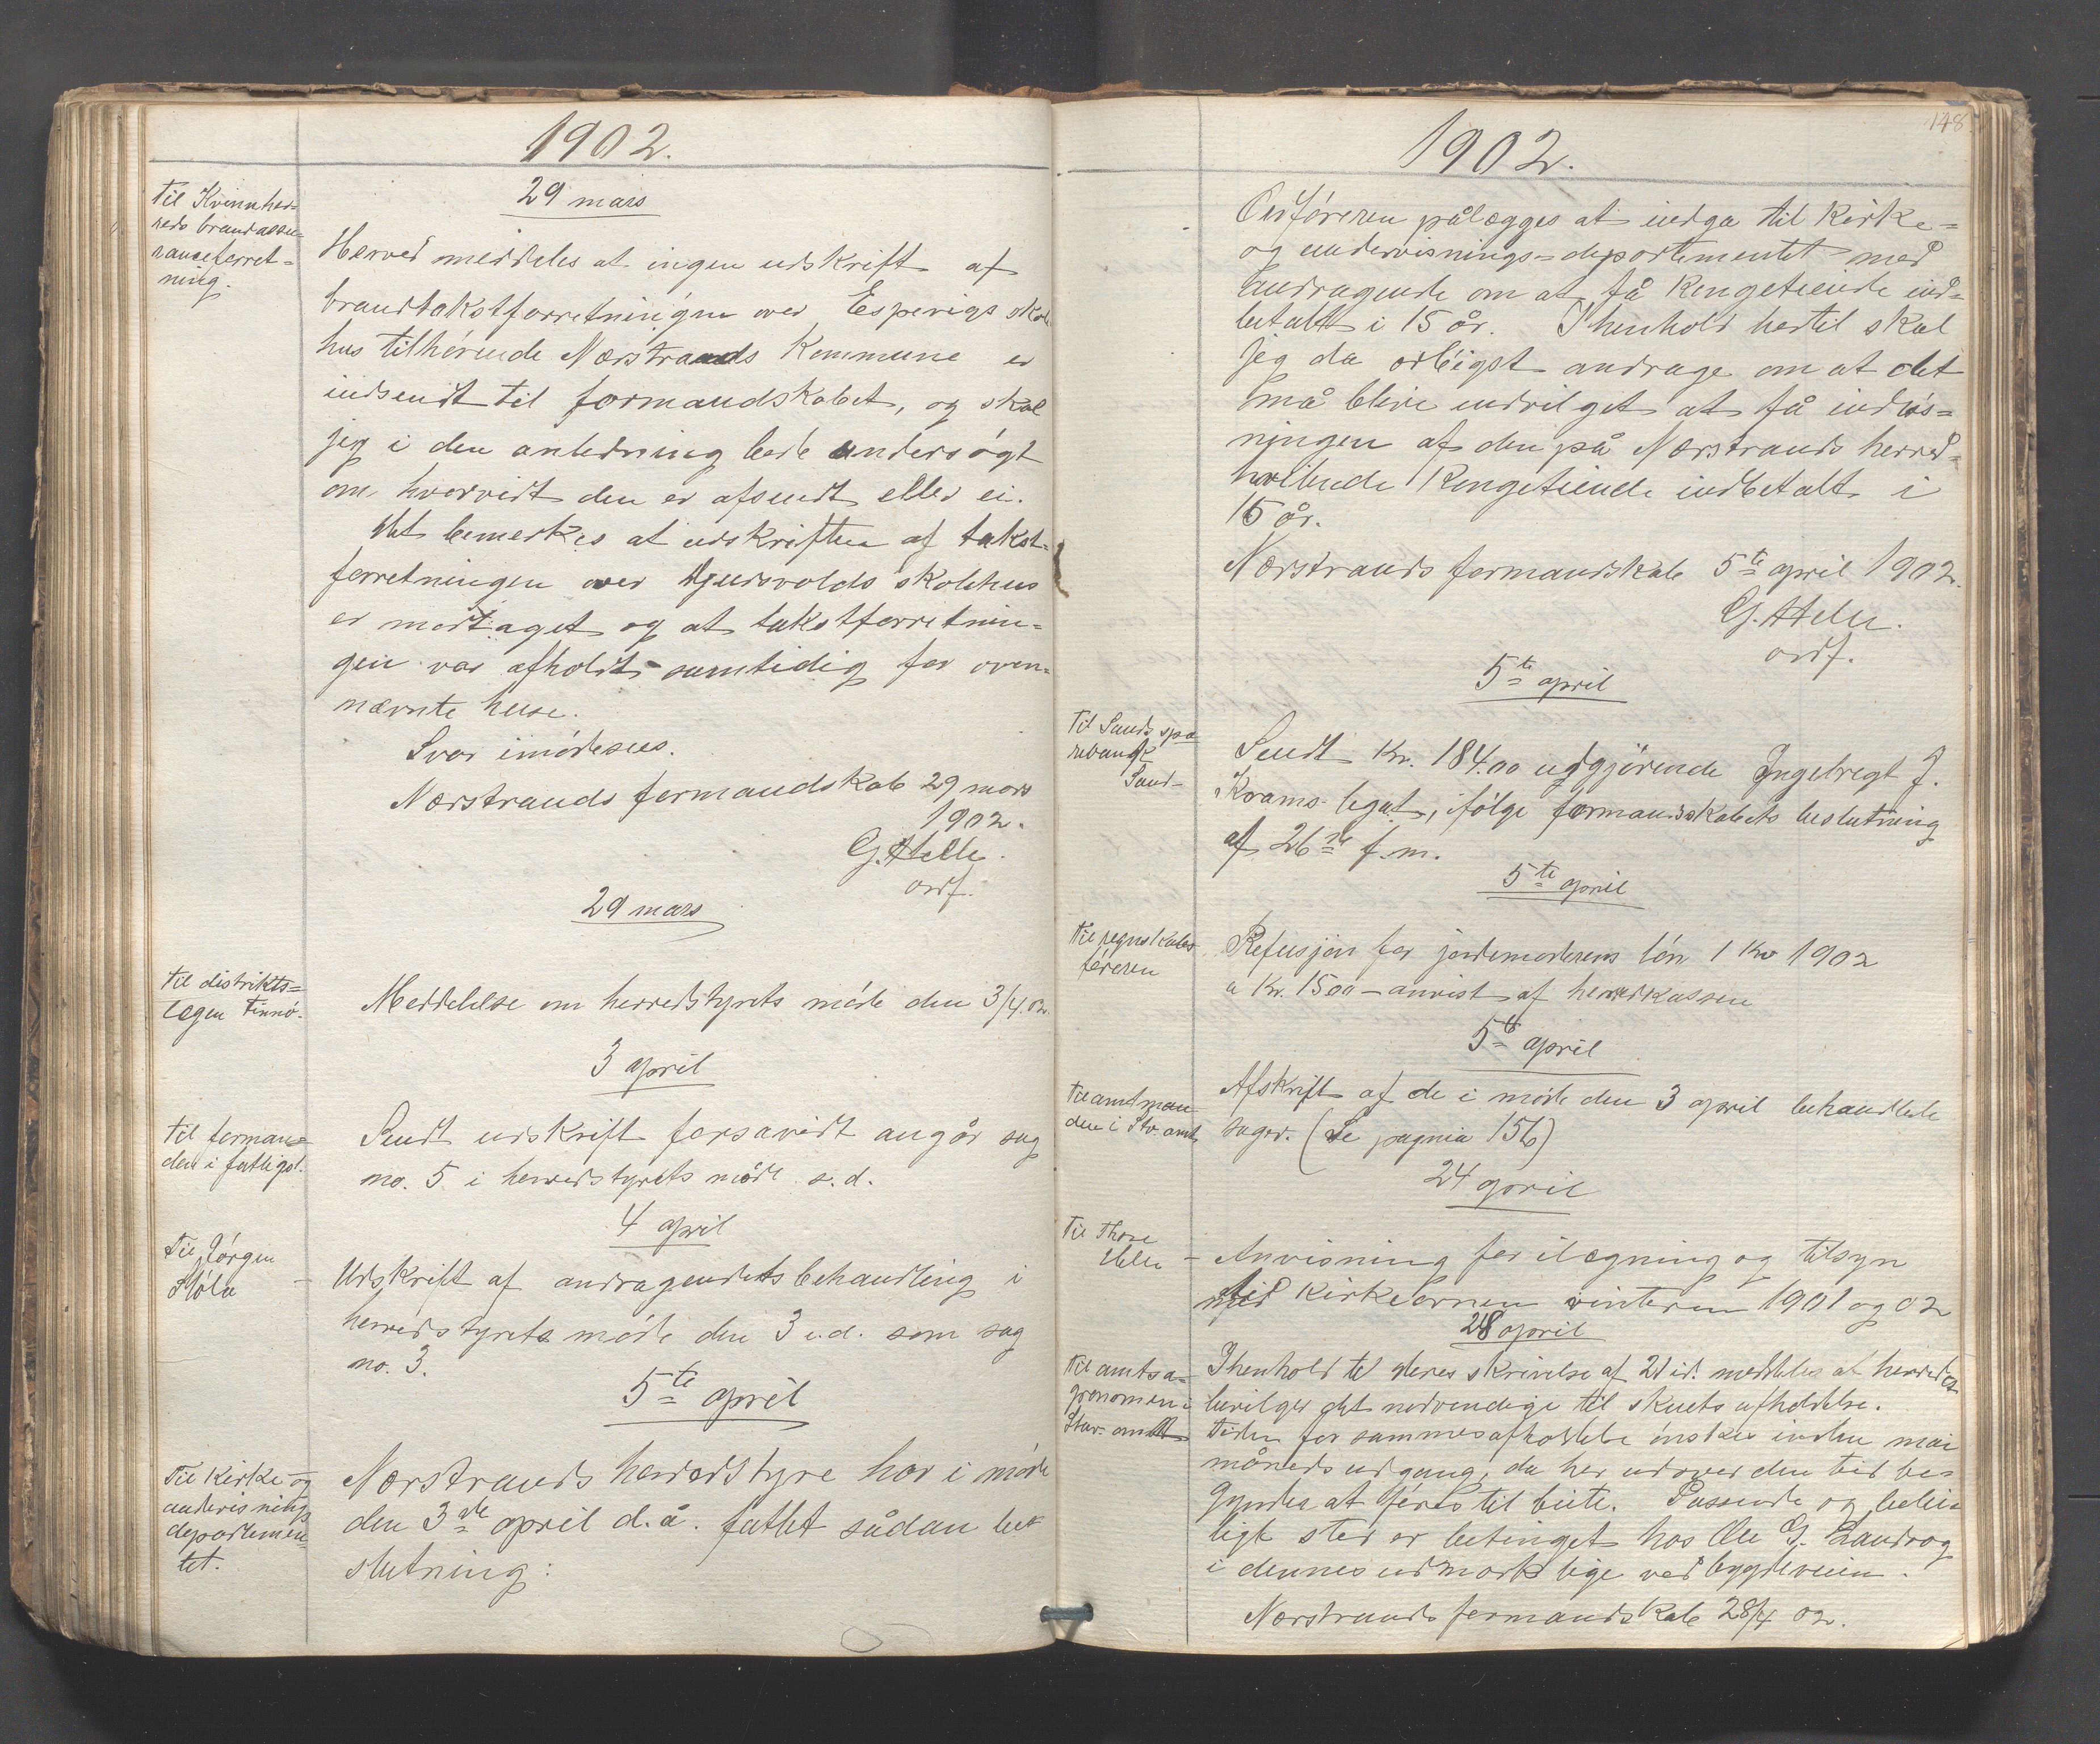 1902.
29 mars
Til Kvinnher=
reds brandassu=
ranceforret=
ning.
Herved meddeles at ingen udskrift af
brandtakstforretningen over Espevigs skole
hus tilhörende Nærstrands Kommune er
indsendt til formandskabet, og skal
jeg i den anledning bede undersögt
om hvorvidt den er afsendt eller ei.
Det bemerkes at udskriften af takst=
forretningen over skolehus
er modtaget og at takstforretnin=
gen var afholdt samtidig for oven=
nævnte huse.
Svar imödesees.
Nærstrands formandskab 29 mars
1902.
G. Helle.
ordf.
29 mars
Til distrikts=
lægen Finnö.
Meddelelse om herredstyrets möde den 3/4.02.
3 april
Til forman=
den i fattigst.
Sendt udskrift forsavidt angår sag
no. 5 i herredstyrets möde s.d.
4 april
Til Jörgen
Udskrift af andragendets behandling i
herredstyrets möde den 3 d. som sag
no. 3.
5te april
Til Kirke og
undervisnings
departemen=
tet.
Nærstrands herredstyre har i möde
den 3de april d.å. fattet sådan be=
slutning:
148
1902.
Ordföreren pålægges at indgå til Kirke=
og undervisnings=departementet med
andragende om at få Kongetiende ind=
betalt i 15 år. I henhold hertil skal
jeg da ærbödigst andrage om at det
må blive indvilget at få indlös=
ningen af den på Nærstrands herred
hvilende Kongetiende indbetalt i
15 år.
Nærstrands formandskab 5te april 1902.
G. Helle.
ordf.
5te april
Til Sands spa
rebank
Sand-
Sendt Kr. 184.00 udgjörende Ingebregt J.
Kvams legat, ifölge formandskabets beslutning
af 26de f.m.
5te april
Til regnskabs
föreren
Refusjon for jordemoderens lön 1 Kv 1902
a Kr. 15 00 - anvist af herredkassen
5te april
Til amtman
den i Stv. amt
Afskrift af de i möde den 3 april behandlede
sager. (Se pagina 156)
24 april
Til Thore
Helle -
Anvisning for ilægning og tilsyn
med Kirkeovnen vinteren 1901 og 02
28 april
Til amtsa=
gronomen i
Stav. amt
I henhold til deres skrivelse af 21 d. meddeles at herredet
bevilger det nödvendige til skuets afholdelse.
Tiden for sammes afholdelse önskes inden mai
måneds udgang, da her udover den tid be=
gynder at föres til beite. Passende og belei
ligt sted er betinget hos Ole G. Landråg
i dennes udmark lige ved bygdeveien.
Nærstrands formandskab 28/4 02.